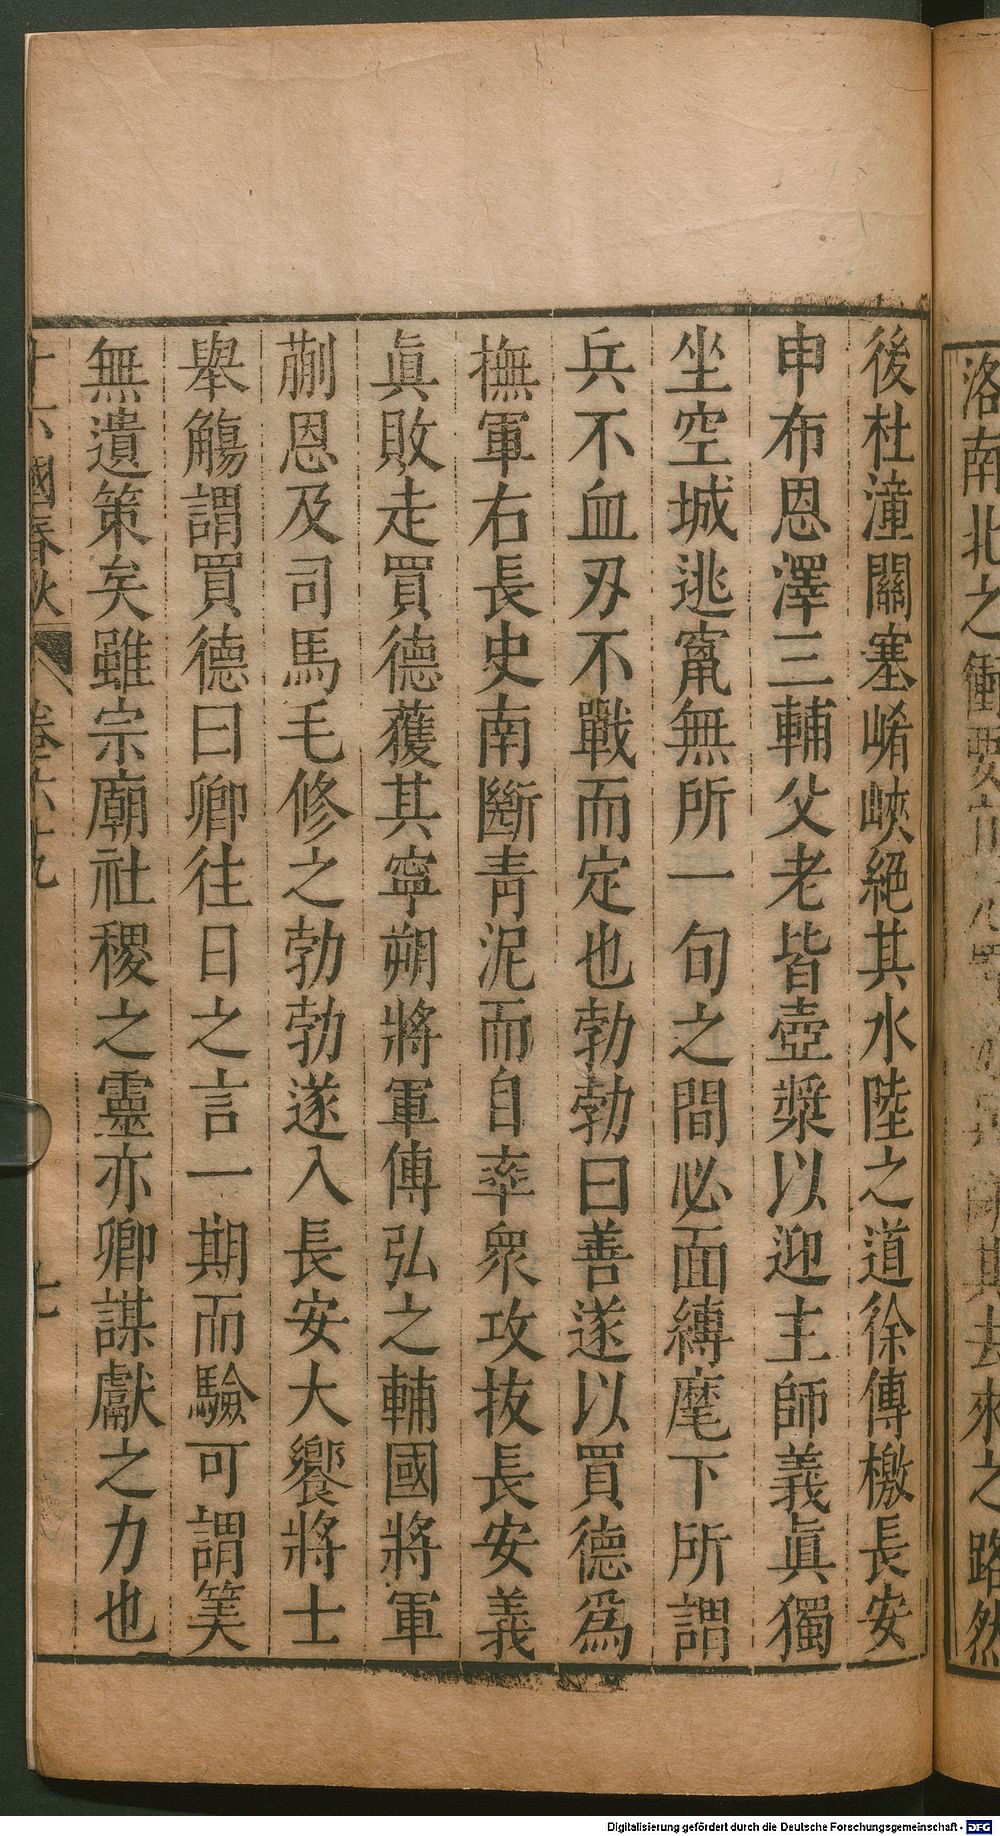 洛南北之衝要
其去來之路然
後杜潼關塞崤峽絕其水陸之道徐傳檄長安
申布恩澤三輔父老皆壺漿以迎主師義眞獨
坐空城逃竄無所一句之間必面縛麾下所謂
兵不血刃不戰而定也勃勃曰善遂以買德爲
撫軍右長史南斷青泥而自率衆攻拔長安義
眞敗走買德獲其寧朔將軍傅弘之輔國將軍
蒯恩及司馬毛修之勃勃遂入長安大饗將士
舉觴謂買德曰卿往日之言一期而驗可謂筭
無遺策矣雖宗廟社稷之靈亦卿謀獻之力也
十六國春秋 卷六十九 七
Digitalisierung gefördert durch die Deutsche Forschungsgemeinschaft - DFG